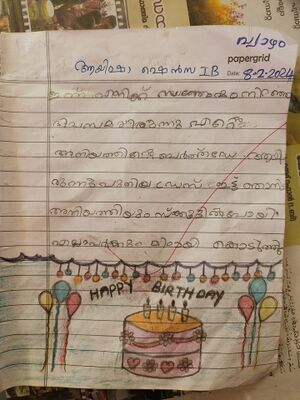 വ്യാഴം
papergrid
ആയിഷാ ഷെൻസ I B Date: 8-2-2024
ഇന്ന് എനിക്ക് സന്തോഷം നിറഞ്ഞ
ദിവസമായിരുന്നു
അനിയത്തിയുടെ ബെർത്ത്ഡേ
ഡ്രസ് ഇട്ട് ഞാനും
അനിയത്തിയും സ്കൂളിൽ പോയി
എല്ലാവർക്കും മിഠായി കൊടുത്തു
HAPPY BIRTHDAY